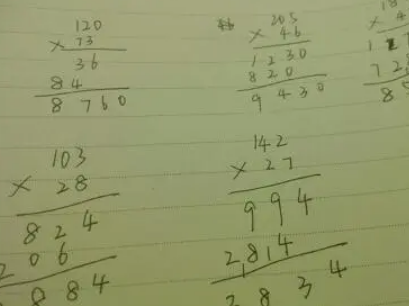 120
× 73
36
84
8760
205
× 46
1230
820
9430
18
× 4
72
8
103
× 28
824
206
884
142
× 27
994
284
3834